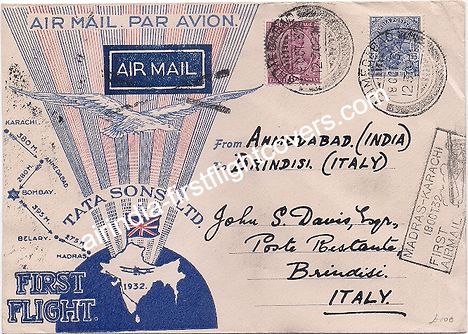 AIR MAIL. PAR AVION.
AIR MAIL
KARACHI.
380 M.
AHMEDABAD
280 M.
BOMBAY.
395 M.
BELARY.
275 M.
MADRAS
TATA SONS LTD.
FIRST
FLIGHT.
1932.
From AHMEDABAD, (INDIA)
To BRINDISI. (ITALY)
John S. Davis, Esqr,
Poste Restante
Brindisi.
ITALY.
MADRAS-KARACHI
18 OCT. 32
FIRST
AIRMAIL
airindia-firstflightcovers.com